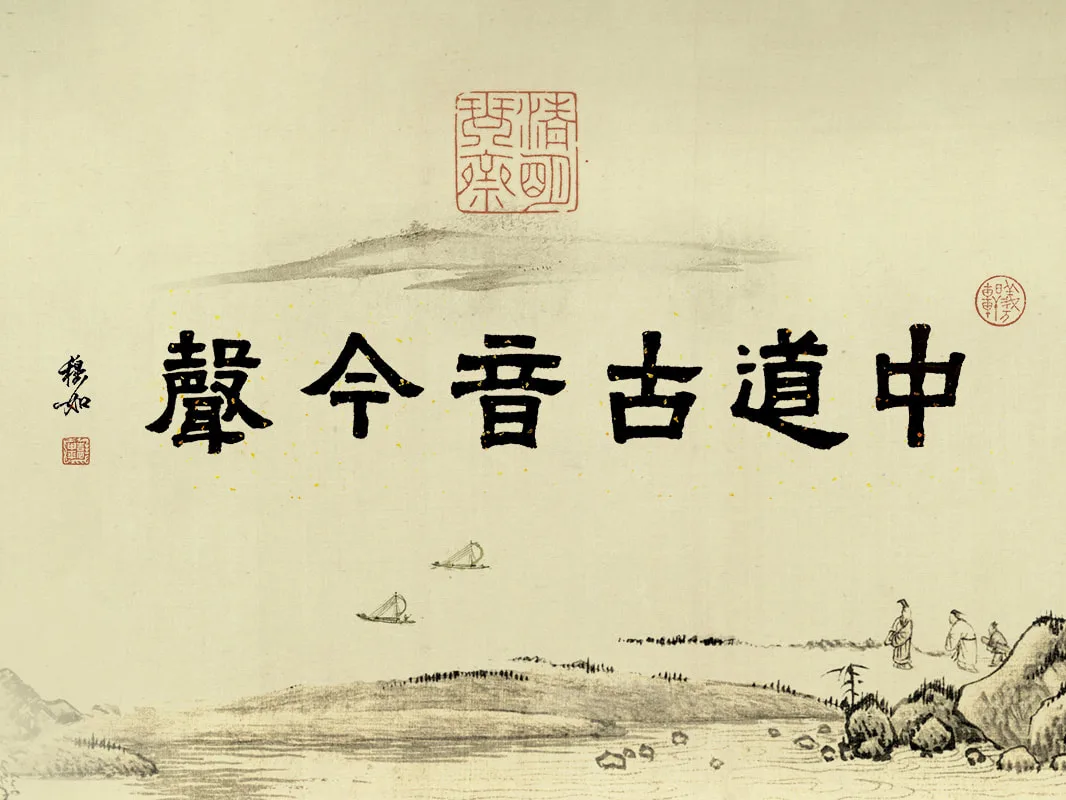 中道古音今聲
穆如